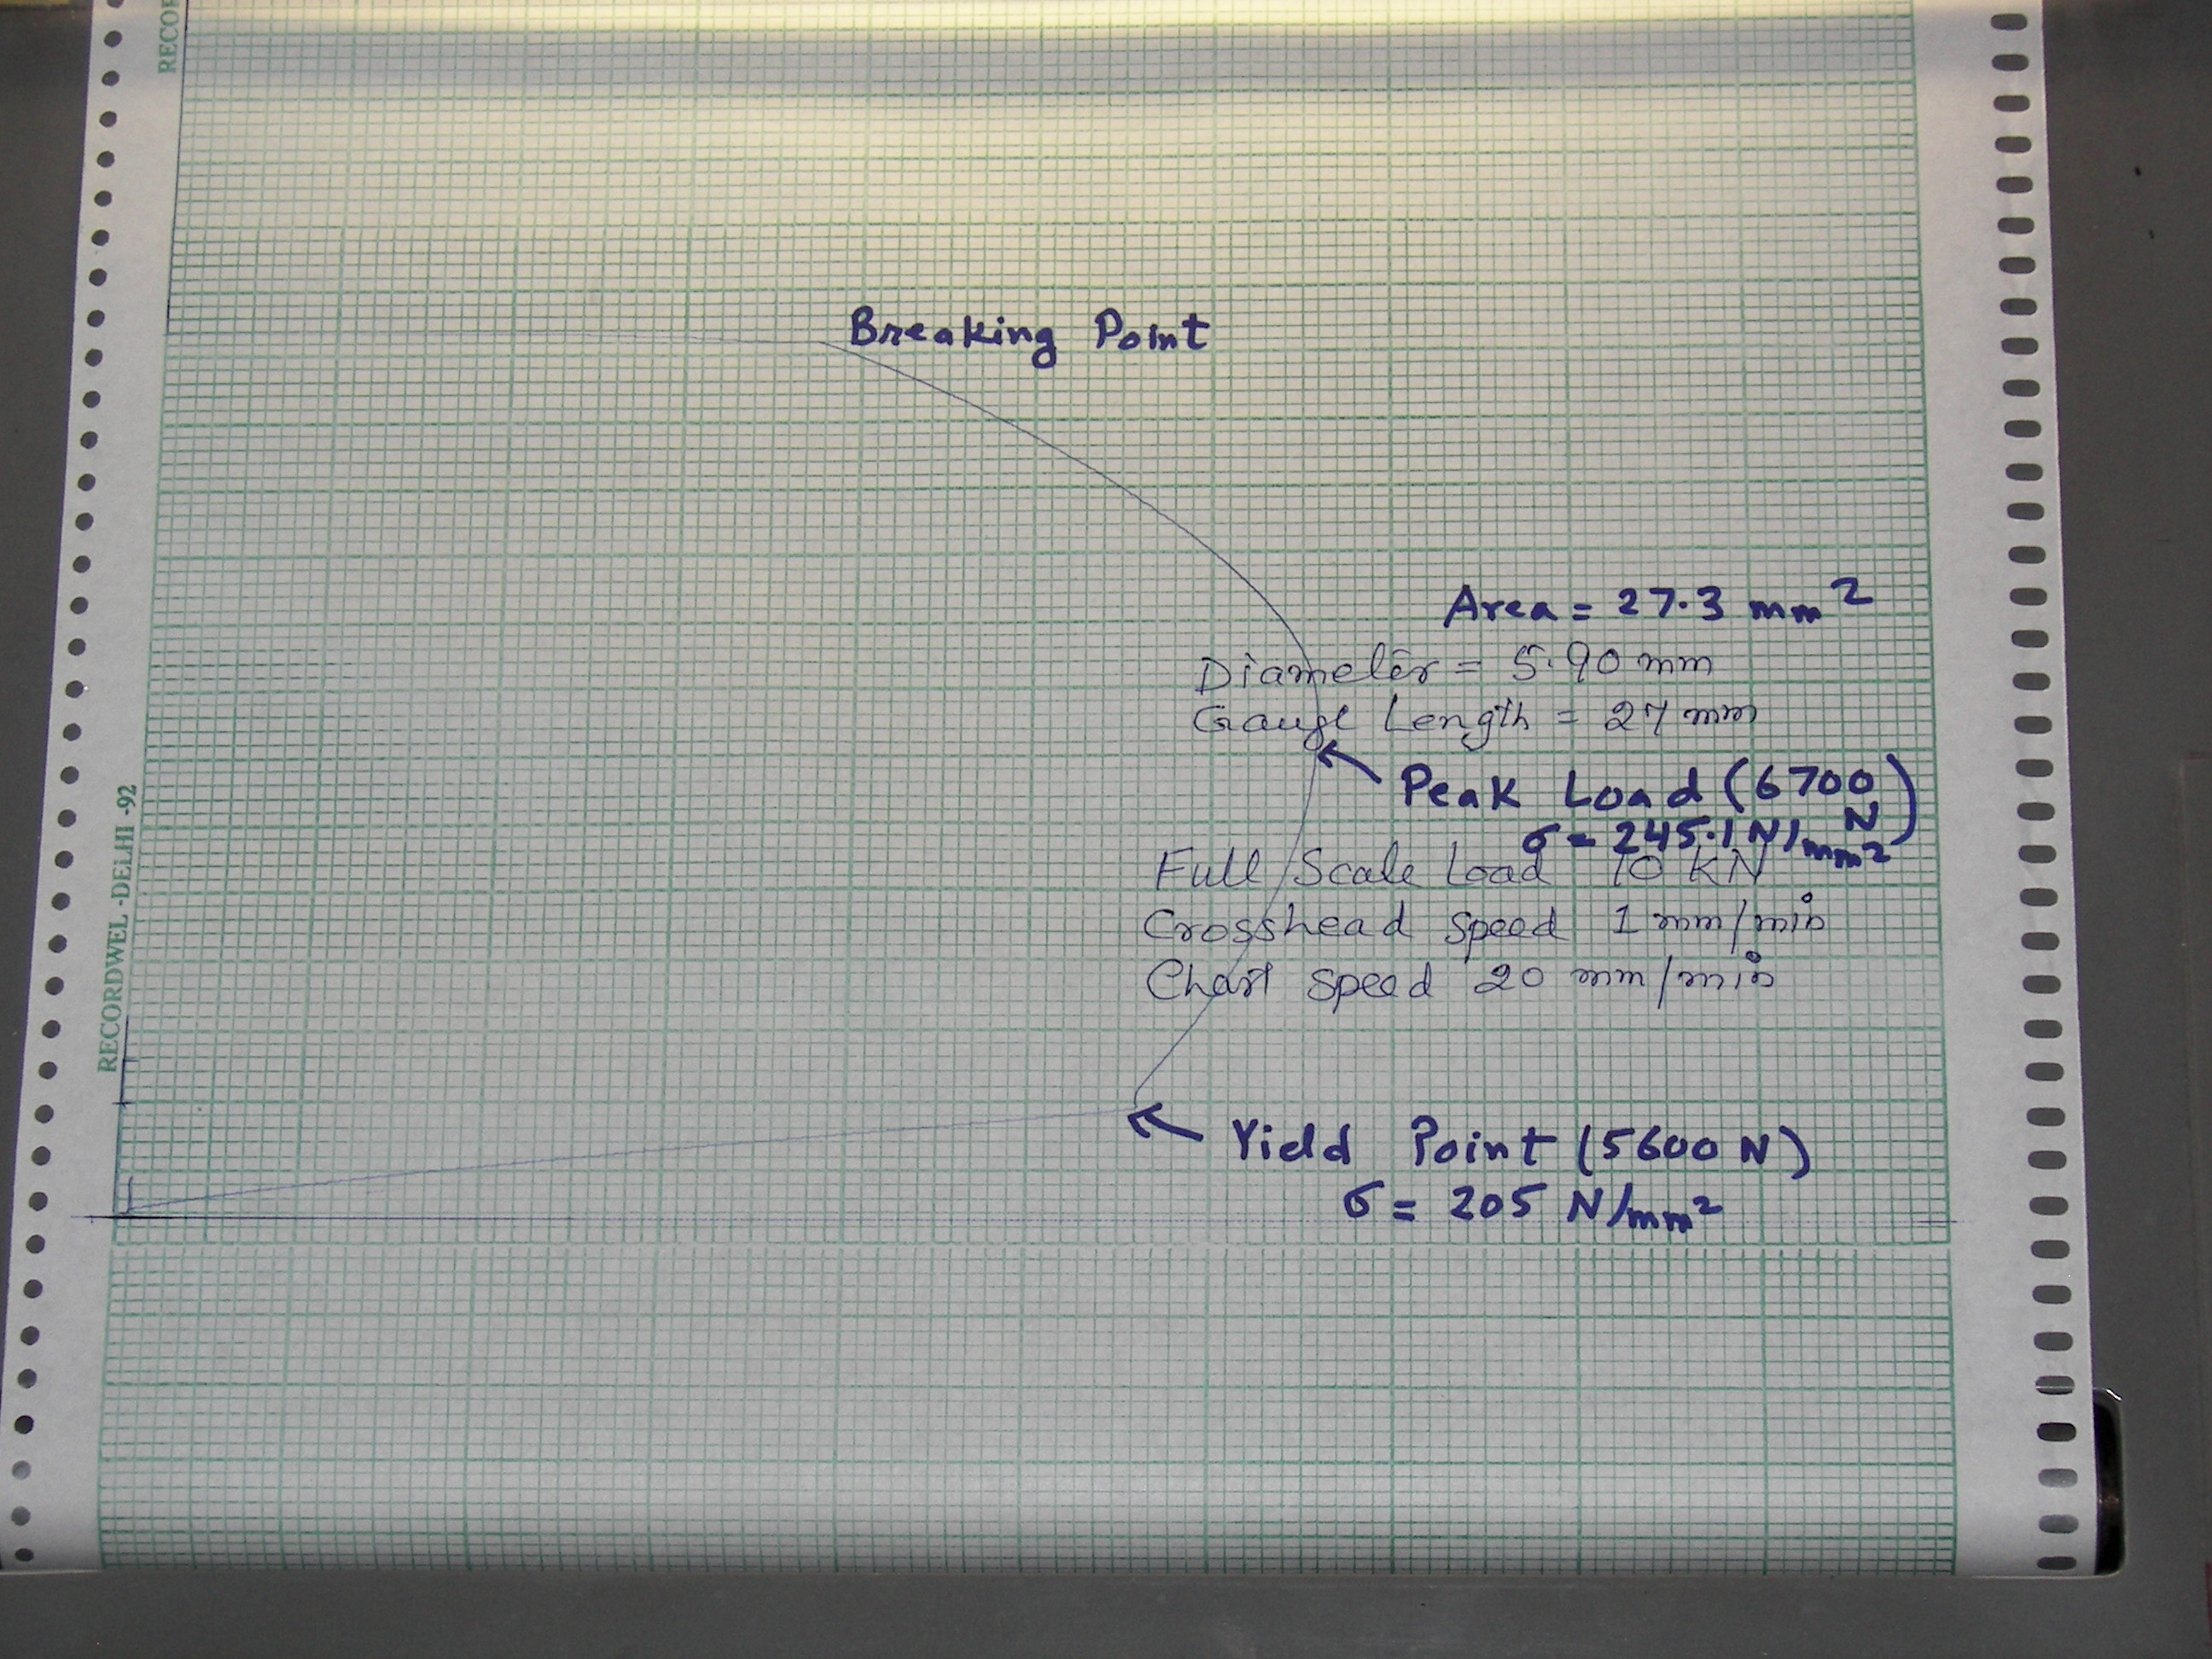 RECOR
Breaking Point
Area = 27.3 mm²
Diameter = 5.90 mm
Gauge Length = 27 mm
Peak Load (6700 N)
σ = 245.1 N/mm²
Full Scale Load 10 KN
Crosshead Speed 1 mm/min
Chart Speed 20 mm/min
RECORDWEL -DELHI -92
Yield Point (5600 N)
σ = 205 N/mm²